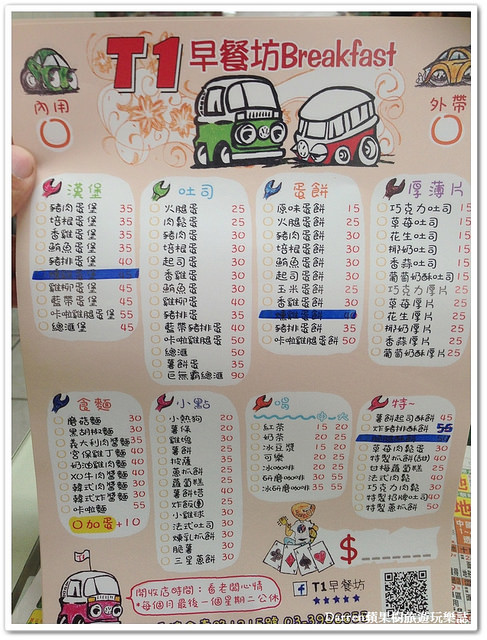 T1 早餐坊Breakfast
內用
外帶
漢堡
豬肉蛋堡 35
培根蛋堡 35
香雞蛋堡 35
鮪魚蛋堡 35
豬排蛋堡 40
雞柳蛋堡 45
藍帶蛋堡 45
咔啦雞腿堡 55
總滙堡 45
吐司
火腿蛋 25
肉鬆蛋 30
豬肉蛋 30
培根蛋 30
起司蛋 30
香雞蛋 30
鮪魚蛋 30
雞柳蛋 40
豬排蛋 35
藍帶豬排蛋 40
咔啦雞腿蛋 50
總滙 50
薯餅蛋 35
巨無霸總滙 90
蛋餅
原味蛋餅 15
火腿蛋餅 25
豬肉蛋餅 30
培根蛋餅 30
鮪魚蛋餅 30
起司蛋餅 30
玉米蛋餅 25
香雞蛋餅 30
薯餅蛋餅 35
咔啦雞腿蛋餅 50
厚薄片
巧克力吐司 15
草莓吐司 15
花生吐司 15
椰奶吐司 15
香蒜吐司 15
葡萄奶酥吐司 15
巧克力厚片 25
草莓厚片 25
花生厚片 25
椰奶厚片 25
香蒜厚片 25
葡萄奶酥厚片 25
食麵
蘑菇麵 30
黑胡椒麵 30
義大利肉醬麵 35
宮保雞丁麵 40
奶油雞肉麵 40
XO牛肉麵 40
韓式肉醬麵 30
韓式炸醬麵 30
咔啦麵 55
加蛋+10
小點
小熱狗 20
薯條 20
雞塊 30
薯餅 20
披薩 35
蔥抓餅 25
蘿蔔糕 25
薯餅塔 40
炸飯團 25
小雞球 30
法式吐司 30
煉乳抓餅 30
脆薯 30
三星蔥餅 30
喝
小 大
紅茶 15 20
奶茶 20 25
冰豆漿 15 20
可樂 20 25
研磨 30 55
冰研磨 35 55
特~
薯餅起司酥餅 45
草莓肉鬆蛋 30
甘梅蘿蔔糕 25
法式肉鬆 40
巧克力肉鬆 30
特製招牌吐司 40
特製蔥抓餅 50
$
開收店時間：看老闆心情
*每個月最後一個星期二公休
T1早餐坊
Darren蘋果樹旅遊玩樂誌